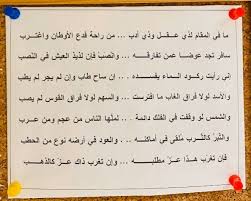 ما في المقام لذي عقل وذي أدب ... من راحة فدع الأوطان واغترب
سافر تجد عوضا عمن تفارقه ... وانصب فإن لذيذ العيش في النصب
إني رأيت ركود الماء يفسده ... إن ساح طاب وإن لم يجر لم يطب
والأسد لولا فراق الغاب ما افترست ... والسهم لولا فراق القوس لم يصب
والشمس لو وقفت في الفلك دائمة ... لملها الناس من عجم ومن عرب
والتبر كالترب ملقى في أماكنه ... والعود في أرضه نوع من الحطب
فإن تغرب هذا عز مطلبه ... وإن تغرب ذاك عز كالذهب